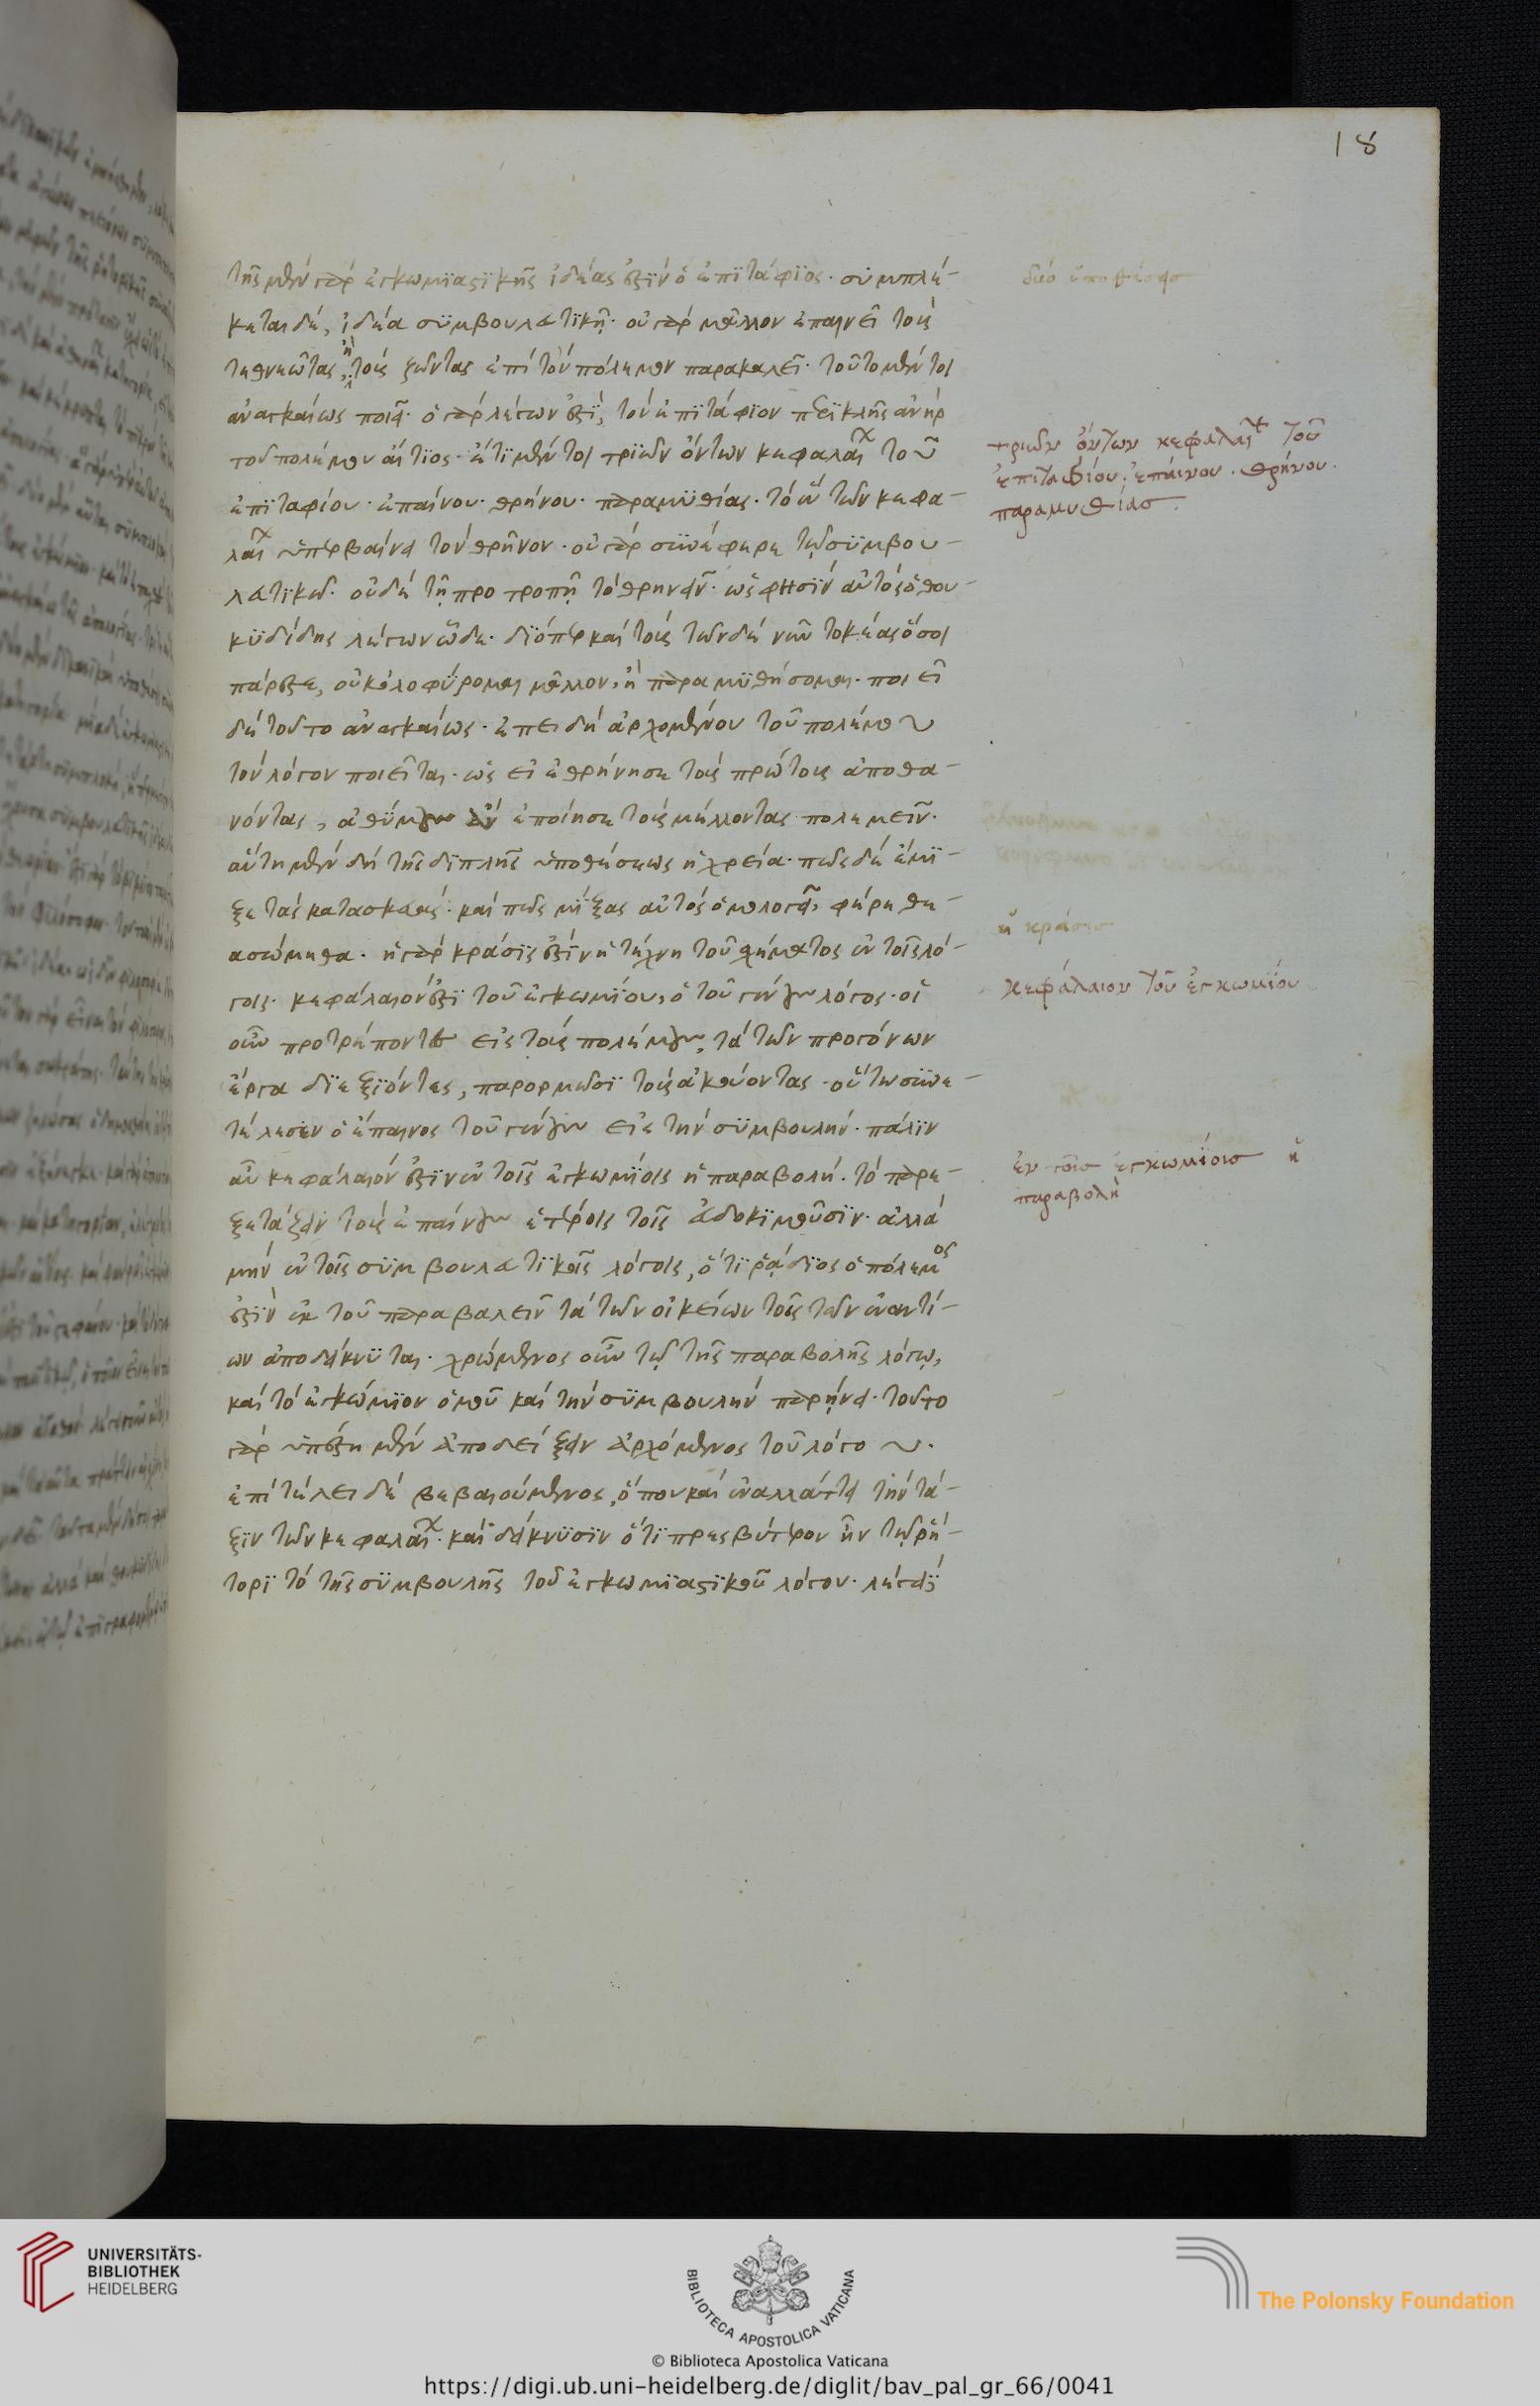 18
τῆς μὲν γὰρ ἐγκωμϊαστϊκῆς ἰδέας ἐστὶν ὁ ἐπϊτάφϊος· συμπλέ-
κεται δὲ, ἰδέα συμβουλευτϊκῆ· οὐ γὰρ μᾶλλον ἐπαινεῖ τοὺς
τεθνεῶτας, ἢ τοὺς ζῶντας ἐπὶ τὸν πόλεμον παρακαλεῖ· τοῦτο μέντοι
ἀναγκαίως ποιεῖ· ὁ γὰρ λέγων ἐστὶ, τὸν ἐπϊτάφϊον περϊκλῆς ἀνὴρ
τοῦ πολέμου αἴτϊος· ἔτϊ μέντοι τρϊῶν ὄντων κεφαλαί τοῦ
ἐπϊταφίου· ἐπαίνου· θρήνου· παραμϋθίας· τὸ ἓν τῶν κεφα-
λαί ὑπερβαίνει τὸν θρῆνον· οὐ γὰρ συνέφερε τῷ συμβου-
λευτϊκῷ· οὐδὲ τῇ προτροπῇ τὸ θρηνεῖν· ὥς φησϊν αὐτὸς ὁ θου-
κϋδίδης λέγων ὧδε· δϊόπερ καὶ τοὺς τῶνδε νῦν τοκέας ὅσοι
πάρεστε, οὐκ ὀλοφύρομαι μᾶλλον, ἢ παραμϋθήσομαι· ποιεῖ
δὲ τοῦτο ἀναγκαίως· ἐπειδὴ ἀρχομένου τοῦ πολέμου
τὸν λόγον ποιεῖται· ὡς εἰ ἐθρήνησε τοὺς πρώτους ἀποθα-
νόντας, ἀθύμους ἂν ἐποίησε τοὺς μέλλοντας πολεμεῖν·
αὕτη μὲν δὴ τῆς διπλῆς ὑποθέσεως ἡ χρεία· πῶς δὲ ἔμϊ-
ξε τὰς κατασκευάς· καὶ πῶς μίξας αὐτὸς ὁμολογεῖ, φέρε θε-
ασώμεθα· ἡ γὰρ κρᾶσϊς ἐστὶν ἡ τέχνη τοῦ σχήματος ἐν τοῖς λό-
γοις· κεφάλαιόν ἐστϊ τοῦ ἐγκωμίου, ὁ τοῦ γένους λόγος· οἱ
οὖν προτρέποντες εἰς τοὺς πολέμους, τὰ τῶν προγόνων
ἔργα δϊεξϊόντες, παρορμῶσϊ τοὺς ἀκούοντας· οὕτω συνε-
τέλεσεν ὁ ἔπαινος τοῦ γένους εἰς τὴν συμβουλήν· πάλϊν
αὖ κεφάλαιόν ἐστϊν ἐν τοῖς ἐγκωμίοις ἡ παραβολή· τὸ παρε-
ξετάζειν τοὺς ἐπαίνους ἑτέροις τοῖς εὐδοκϊμοῦσϊν· ἀλλὰ
μὴν ἐν τοῖς συμβουλευτϊκοῖς λόγοις, ὅτϊ ῥᾴδϊος ὁ πόλεμος
ἐστϊν ἐκ τοῦ παραβαλεῖν τὰ τῶν οἰκείων τοῖς τῶν ἐναντί-
ων ἀποδείκνϋται· χρώμενος οὖν τῷ τῆς παραβολῆς λόγῳ,
καὶ τὸ ἐγκώμϊον ὁμοῦ καὶ τὴν συμβουλὴν παρῄνει· τοῦτο
γὰρ ὑπέστη μὲν ἀποδείξειν ἀρχόμενος τοῦ λόγου·
ἐπὶ τέλει δὲ βεβαιούμενος, ὅπου καὶ ἐναλλάττει τὴν τά-
ξϊν τῶν κεφαλαί· καὶ δείκνϋσϊν ὅτϊ πρεσβύτερον ἦν τῷ ῥή-
τορϊ τὸ τῆς συμβουλῆς τοῦ ἐγκωμϊαστϊκοῦ λόγου· λέγει
δύο ὑποθέσεισ
τριῶν ὄντων κεφαλαί τοῦ
ἐπιταφίου· ἐπαίνου· θρήνου·
παραμυθίασ·
ἡ κρᾶσισ
κεφάλαιον τοῦ ἐγκωμίου
ἐν τοῖσ ἐγκωμίοισ ἡ
παραβολὴ
UNIVERSITÄTS-
BIBLIOTHEK
HEIDELBERG
BIBLIOTECA APOSTOLICA VATICANA
The Polonsky Foundation
© Biblioteca Apostolica Vaticana
https://digi.ub.uni-heidelberg.de/diglit/bav_pal_gr_66/0041